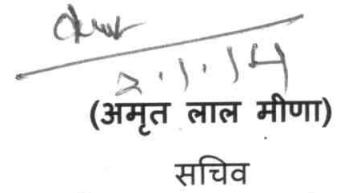 2.1.14
(अमृत लाल मीणा)
सचिव